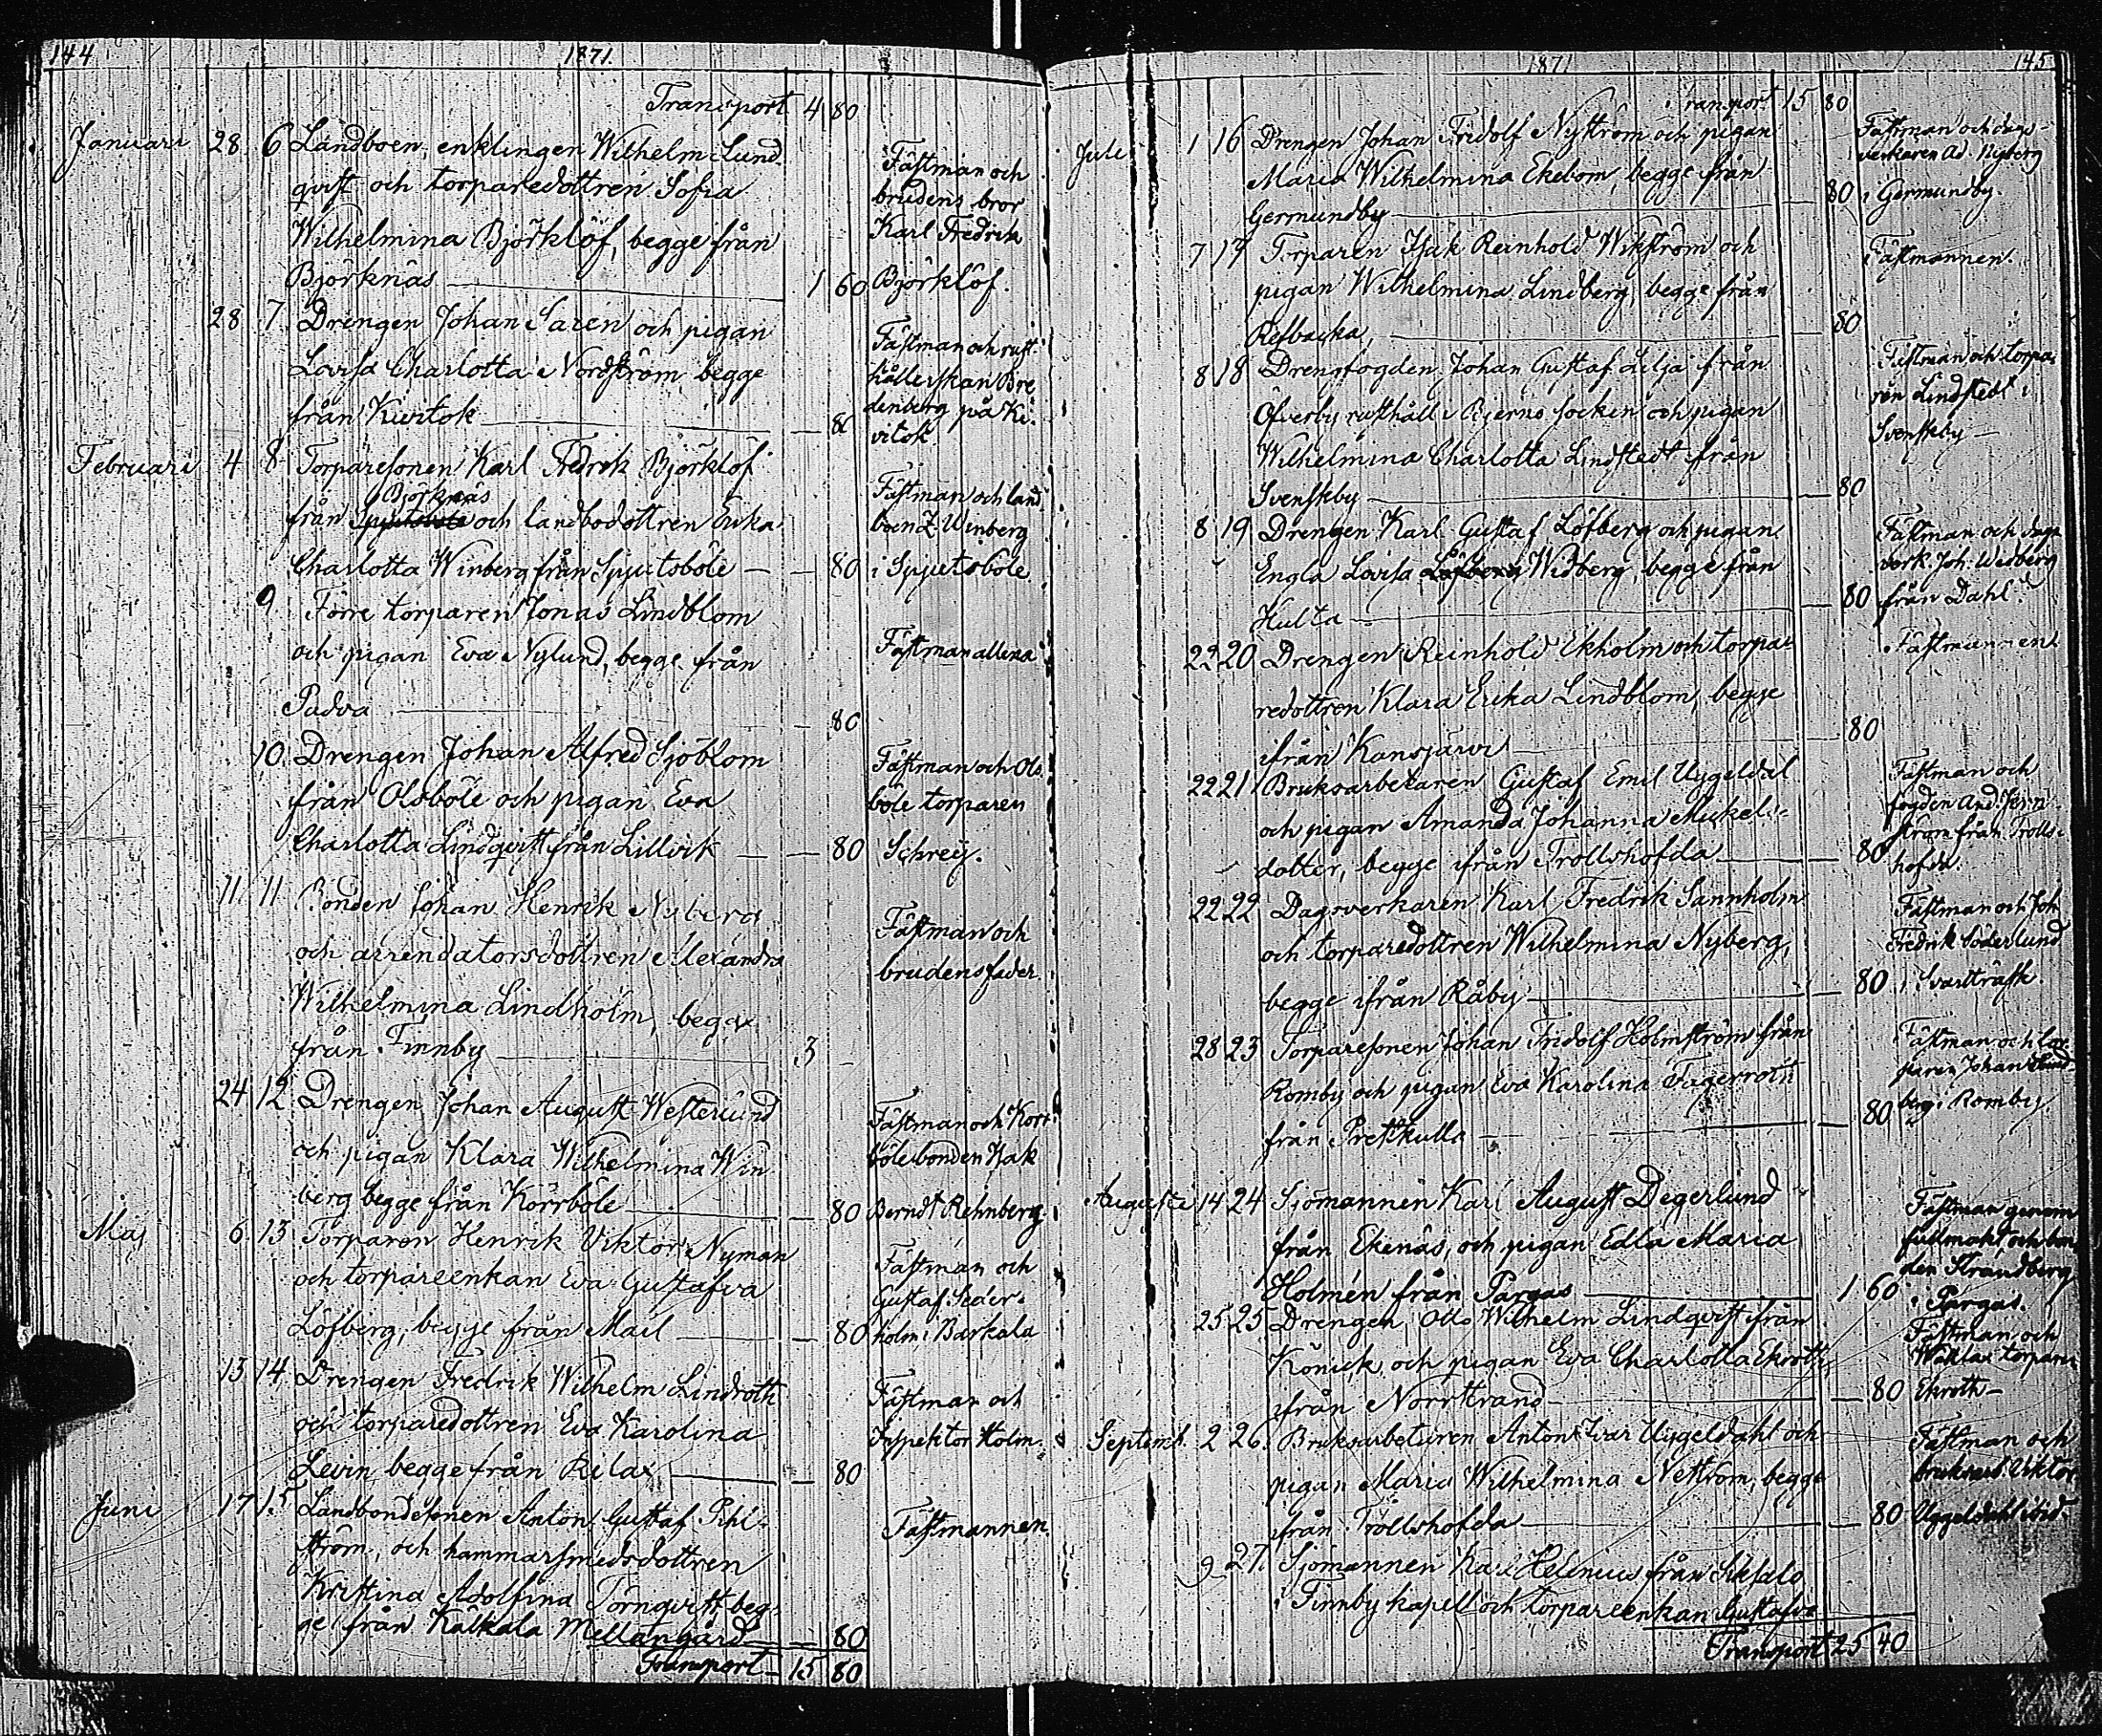 144 1871
Transport 4 80
Januari 28 6 Landboen, enklingen Wilhelm Lund-
qvist och torparedottren Sofia
Wilhelmina Björklöf, begge från
Björknäs 1 60
Fästman och
brudens bror
Karl Fredrik
Björklöf.
28 7 Drengen Johan Sarén och pigan
Lovisa Charlotta Nordström begge
från Kivitok 80
Fästman och rust-
hållerskan Bre
denberg på Ki-
vitok
Februari 4 8 Torparesonen Karl Fredrik Björklöf
Björknäs
från och landbodottren Erika
Charlotta Winberg från Spjutsböle 80
Fästman och land
boen Z Winberg
i Spjutsböle
9 Förre torparen Jonas Lindblom
och pigan Eva Nylund, begge från
Padva 80
Fästman allena
10 Drengen Johan Alfred Sjöblom
från Olsböle och pigan Eva
Charlotta Lindqvist från Lillvik 80
Fästman och Ols
böle torparen
Schrey.
11 11 Bonden Johan Henrik Nyberg
och arrendatorsdottren Alexandra
Wilhelmina Lindholm, begge
från Finnby 3 -
Fästman och
brudens fader.
24 12 Drengen Johan August Westerlund
och pigan Klara Wilhelmina Win
berg begge från Korrböle 80
Fästman och Korr-
böle bonden Isak
Berndt Rehnberg
Maj 6 13 Torparen Henrik Viktor Nyman
och torpareenkan Eva Gustafva
Löfberg, begge från Mail 80
Fästman och
Gustaf Söder-
holm i Barkala
13 14 Drengen Fredrik Wilhelm Lindroth
och torparedottren Eva Karolina
Levin begge från Rilax 80
Fästman och
Inspektor Holm.
Juni 17 15 Landbondesonen Anton Gustaf Pihl-
ström, och hammarsmedsdottren
Kristina Adolfina Törnqvist, beg-
ge från Kålkala Mellangård 80
Fästmannen
Transport 15 80
1871 145
Transport 15 80
Juli 1 16 Drengen Johan Fridolf Nyström och pigan
Maria Wilhelmina Ekebom, begge från
Germundby 80
Fästman och dags-
verkaren Ad. Nyberg
i Germundby.
7 17 Torparen Isak Reinhold Wikström och
pigan Wilhelmina Lindberg, begge från
Refbacka, 80
Fästmannen.
8 18 Drengfogden Johan Gustaf Lilja från
Öfverby rusthåll i Bjerno socken och pigan
Wilhelmina Charlotta Lindstedt från
Svenskby 80
Fästman och torpa-
ren Lindstedt i
Svenskby
8 19 Drengen Karl Gustaf Löfberg och pigan
Engla Lovisa Löfberg Widberg, begge från
Hulta 80
Fästman och dags
verk. Joh. Widberg
från Dahl.
22 20 Drengen Reinhold Ekholm och torpa-
redottren Klara Erika Lindblom, begge
ifrån Kansjärvi 80
Fästmannen.
22 21 Bruksarbetaren Gustaf Emil Uggeldal
och pigan Amanda Johanna Mickels-
dotter, begge ifrån Trollshofda 80
Fästman och
fogden And. Jern
ström från Trolls-
hofda.
22 22 Dagsverkaren Karl Fredrik Sannholm
och torparedottren Wilhelmina Nyberg,
begge ifrån Råby 80
Fästman och Joh
Fredrik Söderlund
i Svartträsk.
28 23 Torparesonen Johan Fridolf Holmström från
Romby och pigan Eva Karolina Fagerroth
från Prestkulla 80
Fästman och tor-
paren Johan Lind-
berg i Romby
Augusti 14 24 Sjömannen Karl August Degerlund
från Ekenäs, och pigan Edla Maria
Holmén från Pargas 1 60
Fästman genom
fullmakt och bon-
den Strandberg
i Pargas.
25 25 Drengen Otto Wilhelm Lindqvist från
Konick, och pigan Eva Charlotta Ekroth
från Norrstrand 80
Fästman och
Wäktar torparen
Ekroth
Septemb. 2 26 Bruksarbetaren Anton Ivar Uggeldahl och
pigan Maria Wilhelmina Nettrom, begge
ifrån Trollshofda 80
Fästman och
bruksarb. Viktor
Uggeldahl ibid.
9 27 Sjömannen Karl Helenius från
i Finnby kapell och torpareenkan Gustafva
Transport 25 40